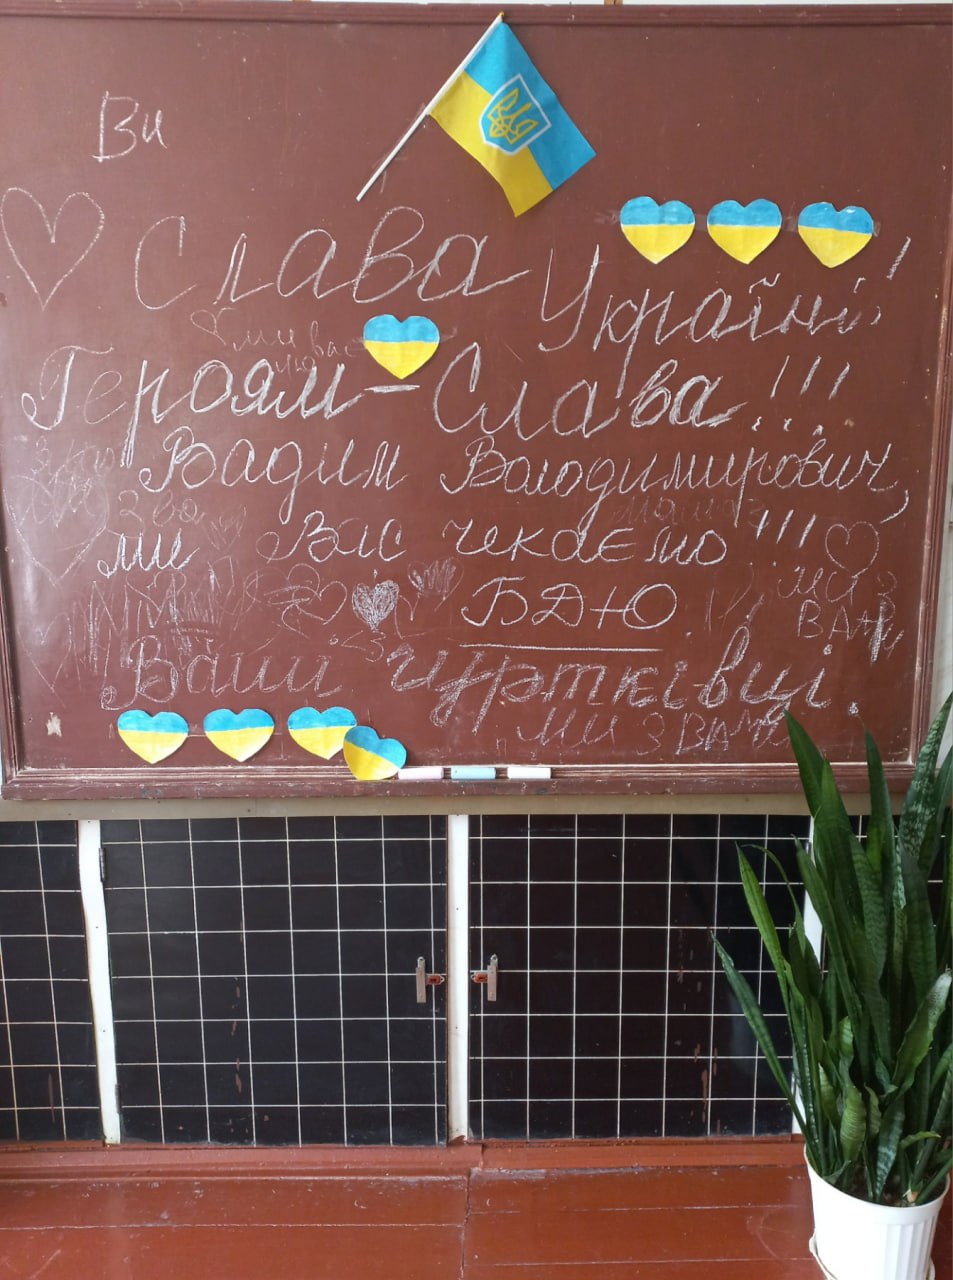 Ви
Слава Україні!
ми
вас
Героям - Слава!!!
Вадим Володимирович,
ми Вас чекаємо!!!
БДЮ
МИ З
ВАМИ
Ваші гуртківці.
МИ З ВАМИ